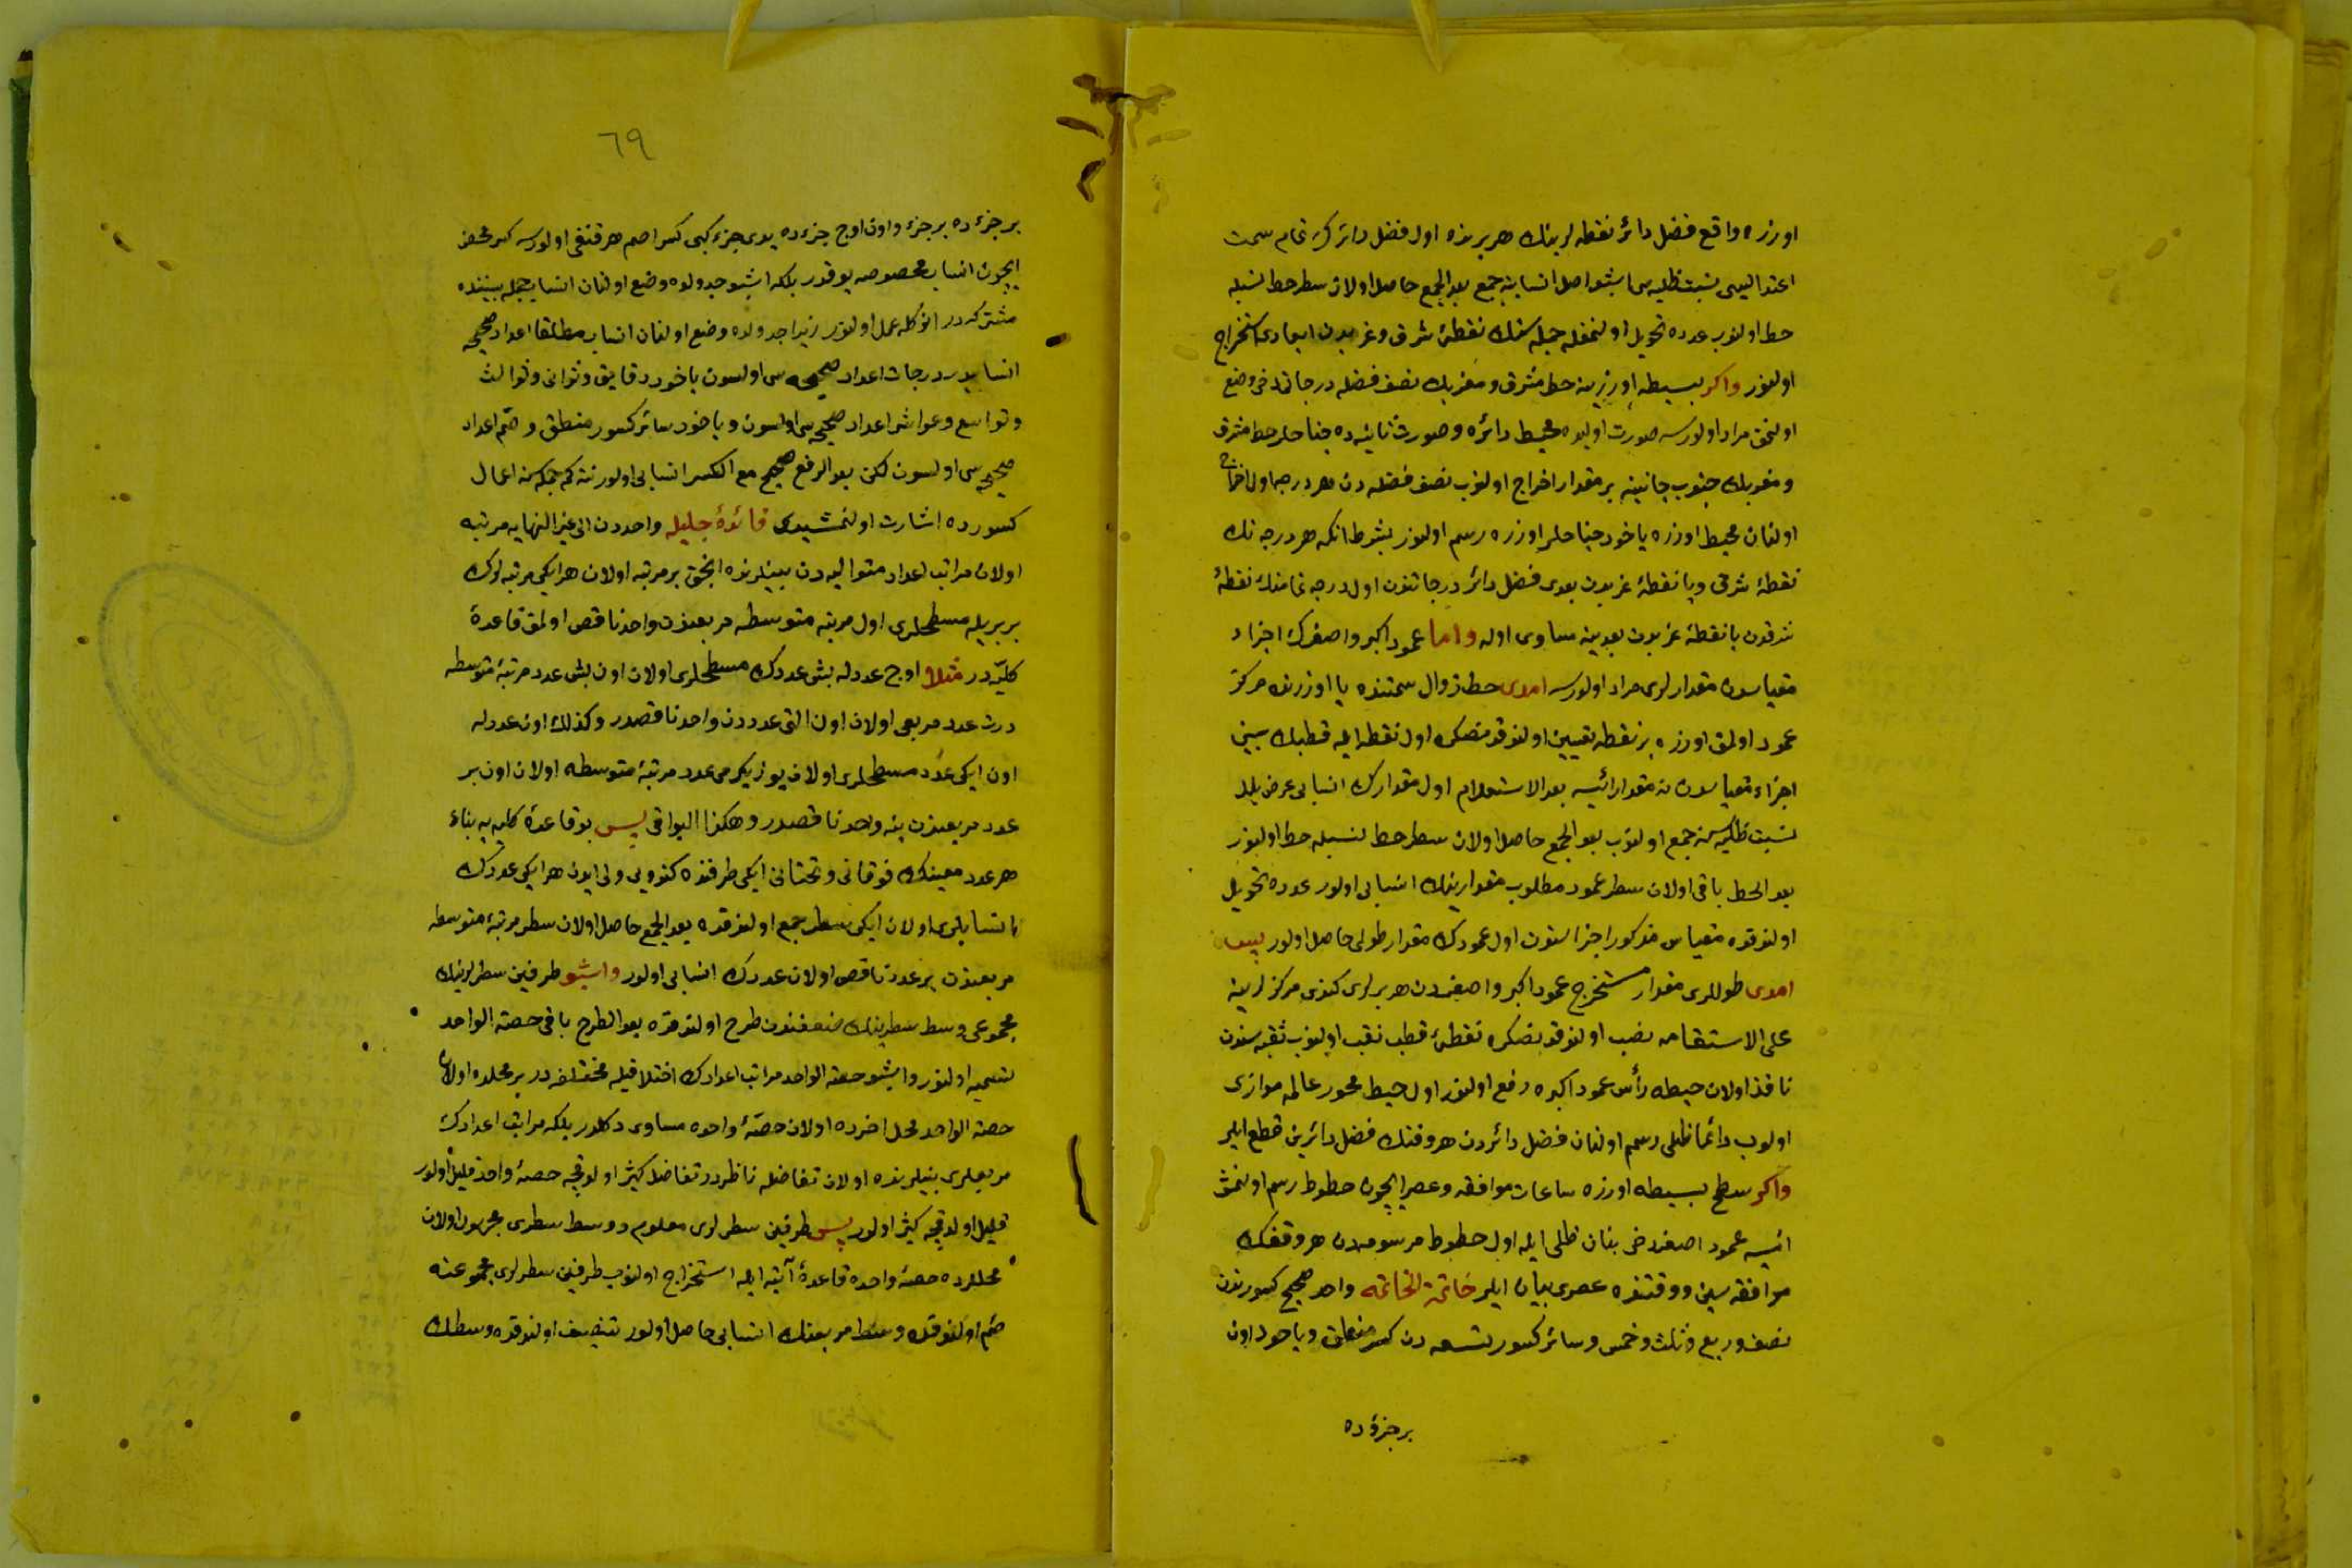 اوزره واقع فضل دائر نقطه لرینك هر برنده اول فضل دائرك تمام سمت
اعتدالیسی نسبت ظلیه سی اشبو اصل انسابنه جمع بعد الجمع حاصل اولان سطر حط نسبله
حط اولنوب عدده تحویل اولنمغله جمله سنك نقطۀ شرق وغربدن ابعادی استخراج
اولنور واكر بسیطه اوزرینه خط مشرق ومغربك نصف فضله درجاتی دخی وضع
اولنمق مراد اولورسه صورت اولیده محیط دائره وصورت ثانیه ده جناحلر خط مشرق
ومغربك جنوب جانبینه بر مقدار اخراج اولنوب نصف فضله دن هر درجه اول اخراج
اولنان محیط اوزره یاخود جناحلر اوزره رسم اولنور بشرط انكه هر درجه نك
نقطۀ شرقی ویا نقطۀ غربدن بعدی فضل دائر درجاتندن اول درجه تمامنك نقطۀ
شرقدن یا نقطۀ غربدن بعدینه مساوی اوله واما عمود اكبر واصغرك اجزاء
مقیاسدن مقدارلری مراد اولورسه امدی خط زوال سمتنده یا اوزرنده مركز
عمود اولمق اوزره بر نقطه تعیین اولندقدنصكره اول نقطه ایله قطبك بینی
اجزاء مقیاسدن نه مقدار ایسه بعد الاستعلام اول مقدارك انسابی عرض بلد
نسبت ظلیه سنه جمع اولنوب بعد الجمع حاصل اولان سطر حط نسبله حط اولنور
بعد الحط باقی اولان سطر عمود مطلوب مقدارینك انسابی اولور عدده تحویل
اولندقده مقیاس مذكور اجزاسندن اول عمودك مقدار طولی حاصل اولور
امدی طوللری مقدار مستخرج عمود اكبر واصغردن هر برلری كندی مركزلرینه
على الاستقامه نصب اولندقدنصكره نقطۀ قطب نقب اولنوب ثقبه سندن
نافذ اولان خیطه رأس عمود اكبره رفع اولنور اول خیط محور عالمه موازی
اولوب دائما ظلی رسم اولنان فضل دائردن هر وقتك فضل دائرین قطع ایلر
واكر سطح بسیطه اوزره ساعات موافقه وعصر ایچون خطوط رسم اولنمش
ایسه عمود اصغر دخی بنان ظلی ایله اول خطوط مرسومه دن هر وقتك
موافقه سین ووقتنده عصری بیان ایلر خاتمة الخاتمه واحد صحیح كسورندن
نصف وربع وثلث وخمس وسائر كسور تسعه دن كسر منطق ویاخود اون
بر جزؤده
٦٩
بر جزءده بر جزء واون اوچ جزءده یدی جزء كبی كسر اصم هر قنغی اولورسه كسر محض
ایچون انساب مخصوصه یوقدر بلكه اشبو جدولده وضع اولنان انساب جمله بیننده
مشتركدر انوكله عمل اولنور زیرا جدولده وضع اولنان انساب مطلقا اعداد صحیحه
انسابیدر درجات اعداد صحیحه سی اولسون یاخود دقایق وثوانی وثوالث
وتواسع وعواشر اعداد صحیحه سی اولسون ویاخود سائر كسور منطق واصم اعداد
صحیحه سی اولسون لكن بعد الرفع صحیح مع الكسر انسابی اولور نته كم اعمال
كسورده اشارت اولنمشیدی فائدۀ جلیله واحددن الى غیر النهایه مرتبه
اولان مراتب اعداد متوالیه دن بینلرنده انجق بر مرتبه اولان هر ایكی مرتبه لرك
بربریله مسطحلری اول مرتبه متوسطه مربعندن واحد ناقص اولمق قاعدۀ
كلیه در مثلا اوچ عددله بش عددك مسطحلری اولان اون بش عدد مرتبۀ متوسطه
درت عدد مربعی اولان اون التی عددن واحد ناقصدر وكذلك اون عددله
اون ایكی عدد مسطحلری اولان یوز یكرمی عدد مرتبۀ متوسطه اولان اون بر
عدد مربعندن ینه واحد ناقصدر وهكذا البواقی پس بو قاعدۀ كلیه یه بناء
هر عدد معینك فوقانی وتحتانی ایكی طرفنده كندویی ولی ایدن هر ایكی عددك
انسابلری اولان ایكی سطر جمع اولندقده بعد الجمع حاصل اولان سطر مرتبۀ متوسطه
مربعندن بر عدد ناقص اولان عددك انسابی اولور واشبو طرفین سطرلرینك
مجموعی وسط سطرینك ضعفندن طرح اولندقده بعد الطرح باقی حصة الواحد
تسمیه اولنور واشبو حصة الواحد مراتب اعدادك اختلافیله مختلفه در بر محلده اولان
حصة الواحد محل اخرده اولان حصۀ واحده مساوی دكلدر بلكه مراتب اعدادك
مربعلری بینلرنده اولان تفاضله ناظردر تفاضل كثیر اولدقجه حصۀ واحد قلیل اولور
قلیل اولدقجه كثیر اولور پس طرفین سطرلری معلوم ووسط سطری مجهول اولان
محللرده حصۀ واحده قاعدۀ آتیه ایله استخراج اولنوب طرفین سطرلری مجموعنه
ضم اولندقده وسط مربعنك انسابی حاصل اولور تنصیف اولندقده وسطك